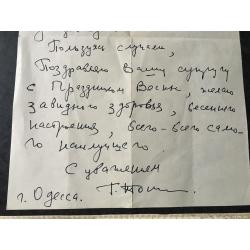 Пользуясь случаем,
Поздравляю Вашу супругу
с Праздником Весны, желаю
завидного здоровья, весеннего
настроения, всего-всего само-
го наилучшего.
С уважением
г. Одесса.